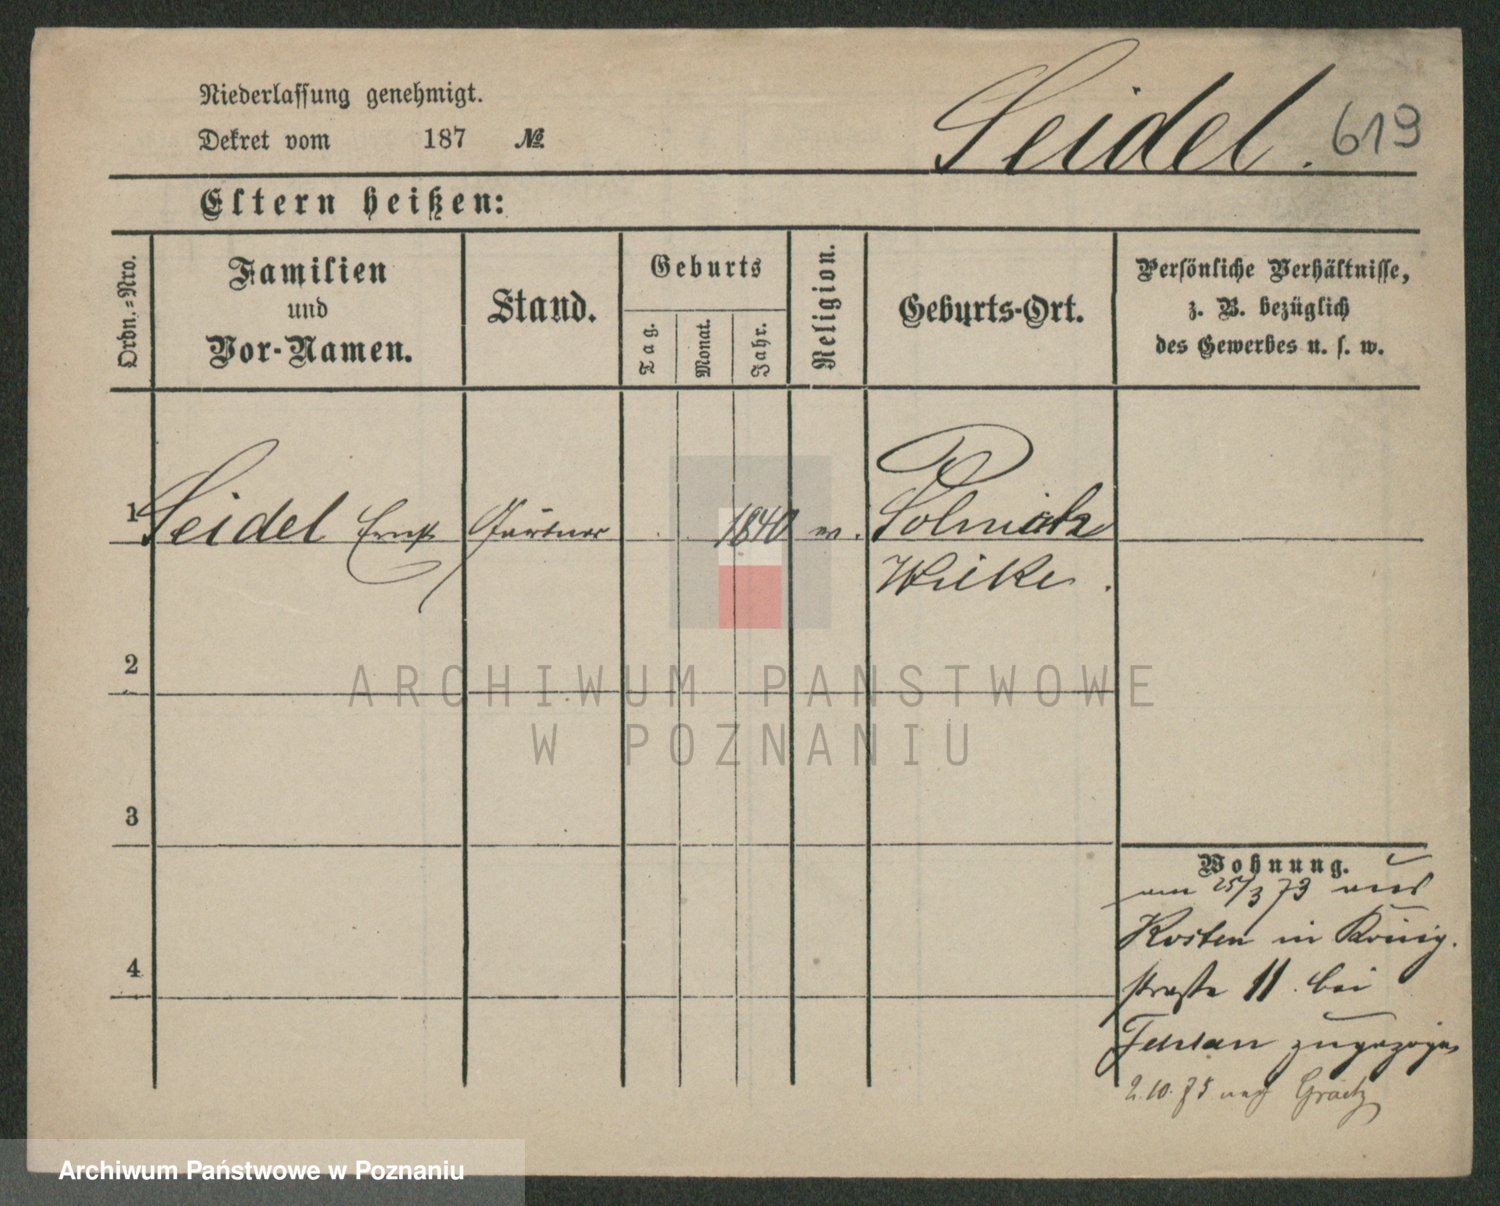 Niederlassung genehmigt.
Dekret vom 187 №
Seidel. 619
Eltern heißen:
Ordn.-Nro.
Familien
und
Vor-Namen.
Stand.
Geburts
Tag.
Monat.
Jahr.
Religion.
Geburts-Ort.
Persönliche Verhältnisse,
z. B. bezüglich
des Gewerbes u. s. w.
1 Seidel Ernst Gärtner 1840
Wilke.
2
3
4
Wohnung.
am 25/3 73 aus
Kosten in König-
straße 11 bei
zugezogen
2.10.75 nach Graetz
ARCHIWUM PAŃSTWOWE
W POZNANIU
Archiwum Państwowe w Poznaniu